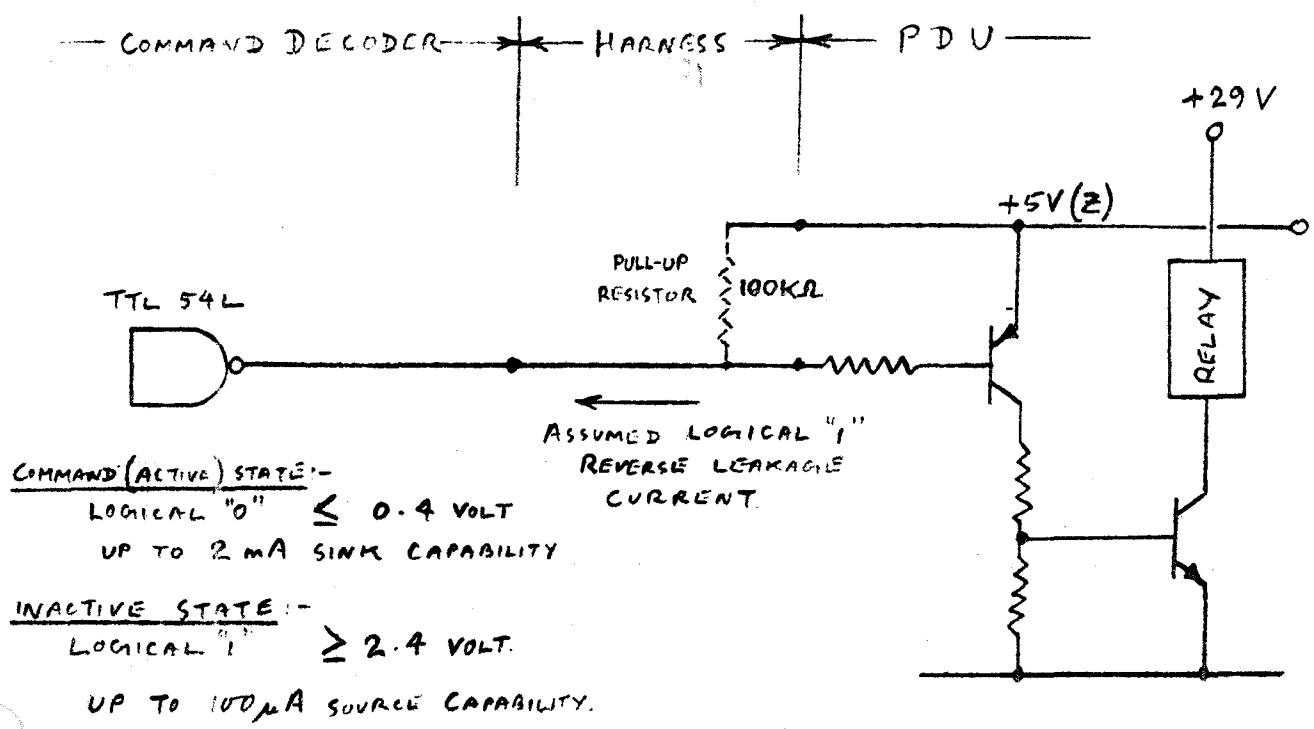 COMMAND DECODER
HARNESS
PDU
+29V
+5V(Z)
PULL-UP
RESISTOR
100KΩ
TTL 54L
RELAY
ASSUMED LOGICAL "1"
REVERSE LEAKAGE
CURRENT.
COMMAND (ACTIVE) STATE:-
LOGICAL "0" ≤ 0.4 VOLT
UP TO 2 mA SINK CAPABILITY
INACTIVE STATE:-
LOGICAL "1" ≥ 2.4 VOLT.
UP TO 100μA SOURCE CAPABILITY.